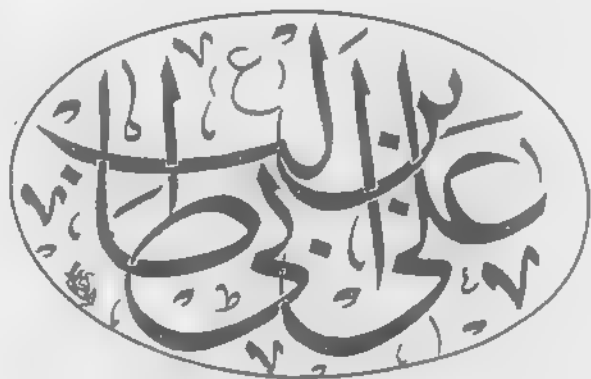 علي بن ابي طالب